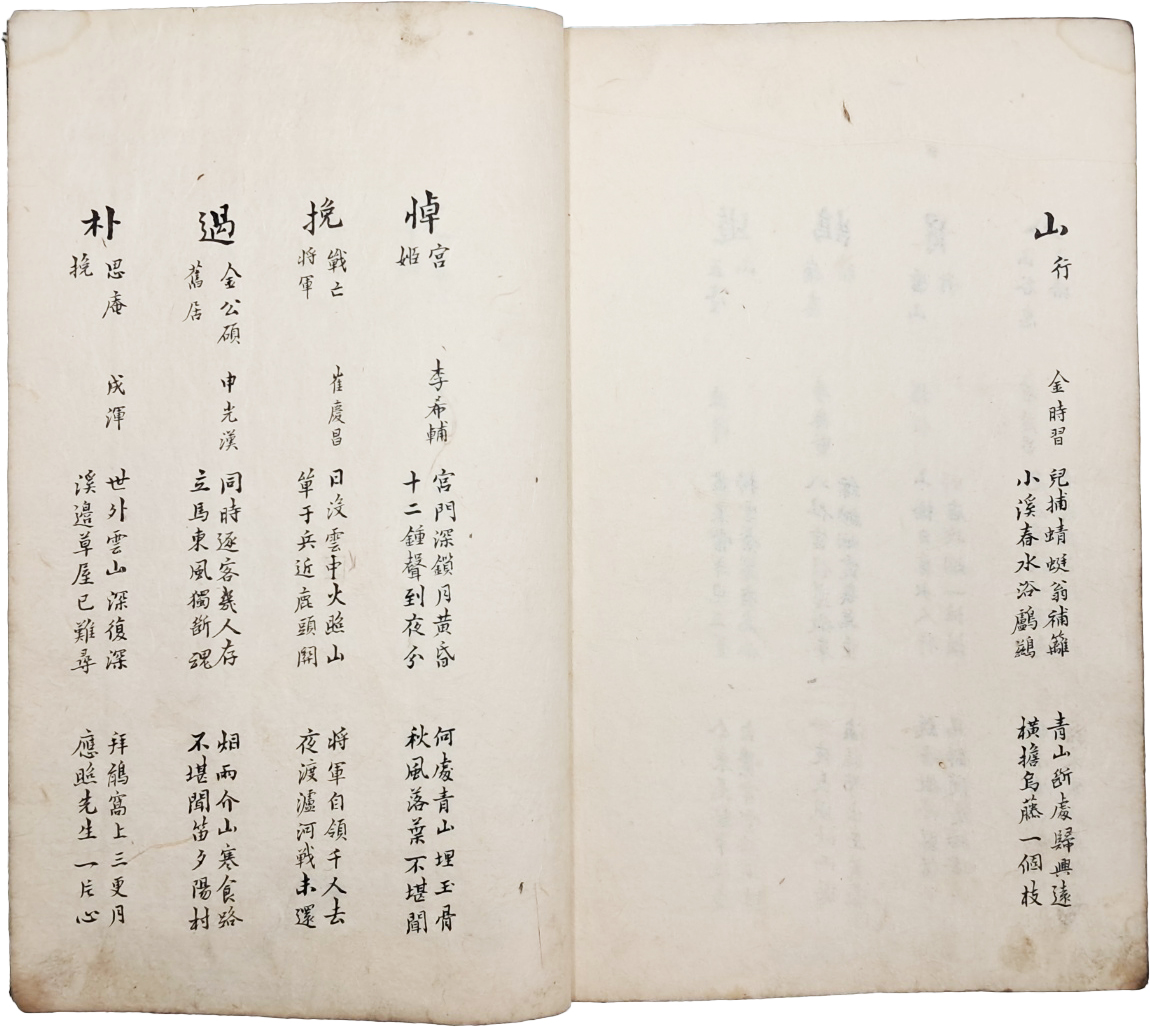 山行 金時習
兒捕蜻蜓翁補籬 青山斷處歸興遠
小溪春水浴鸕鷀 橫擔烏藤一個枝
悼宮姬 李希輔
宮門深鎖月黃昏 何處青山埋玉骨
十二鍾聲到夜分 秋風落葉不堪聞
挽戰亡將軍 崔慶昌
日沒雲中火照山 將軍自領千人去
單于兵近鹿頭關 夜渡瀘河戰未還
過金公碩舊居 申光漢
同時逐客幾人存 烟雨介山寒食路
立馬東風獨斷魂 不堪聞笛夕陽村
朴思庵挽 成渾
世外雲山深復深 拜鵑窩上三更月
溪邊草屋已難尋 應照先生一片心